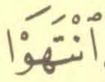 ٱنْتَهَوْا۟